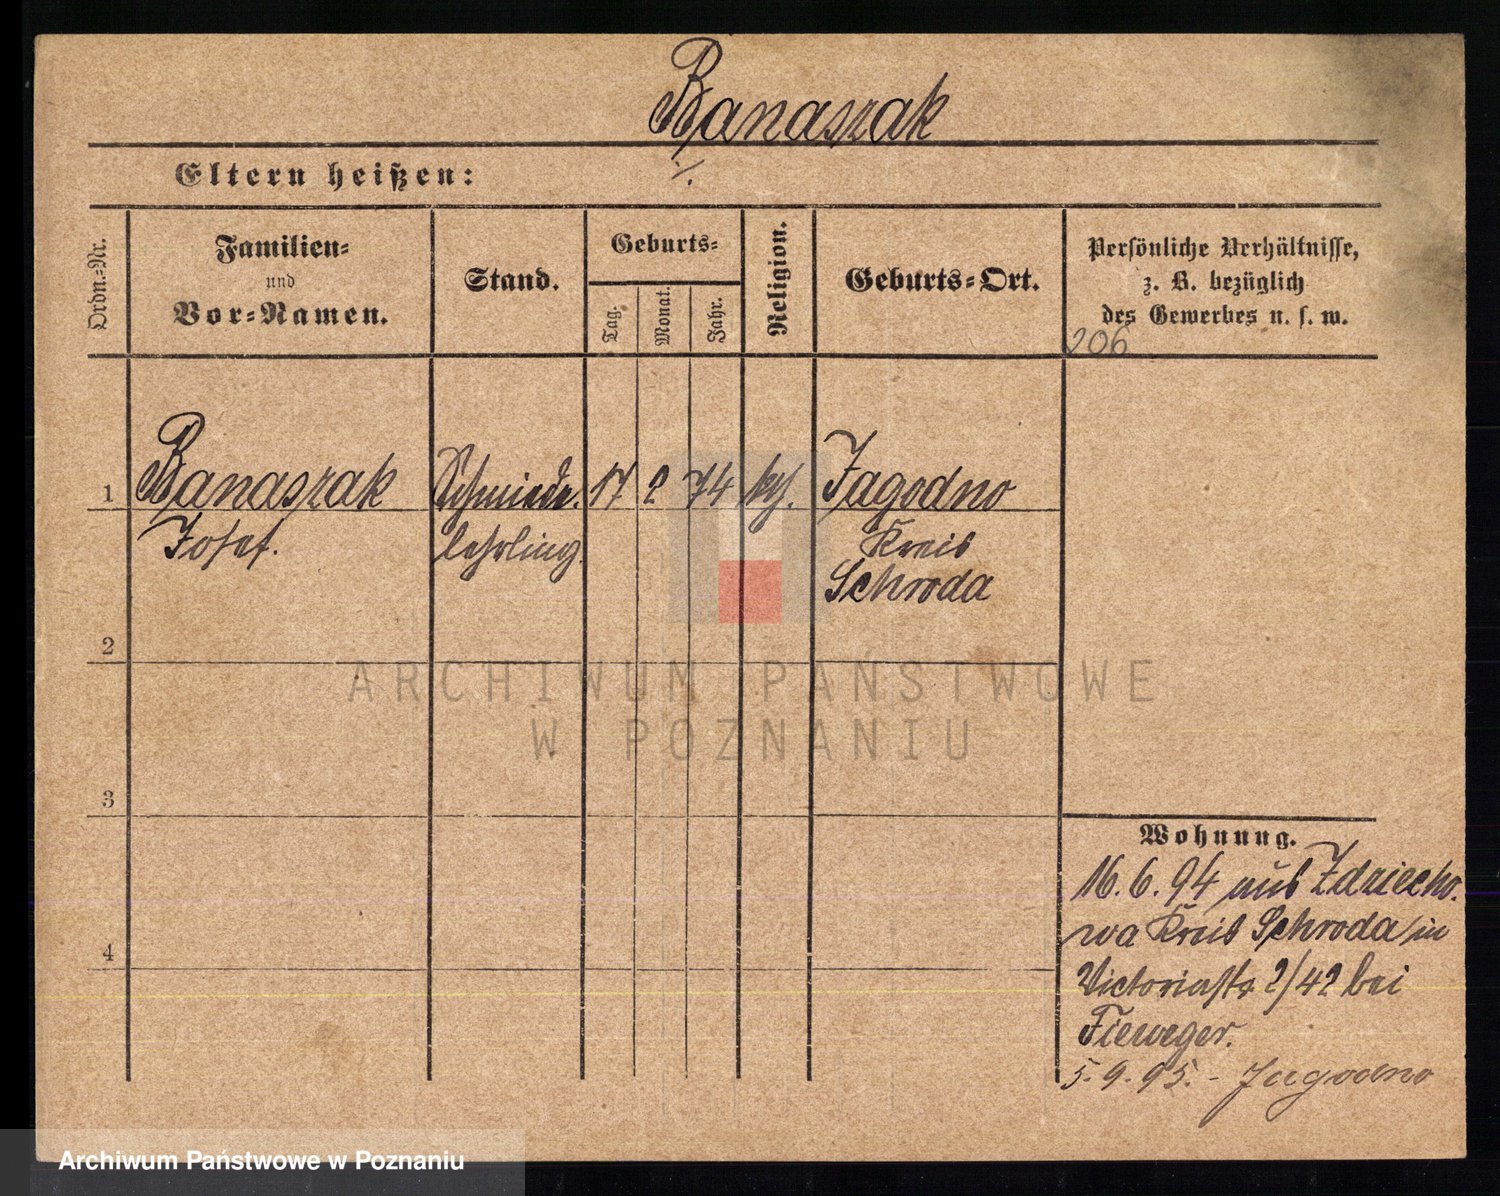 Banaszak
Eltern heißen: ./.
Ordn.-Nr.
Familien-
und
Vor-Namen.
Stand.
Geburts-
Tag.
Monat.
Jahr.
Religion.
Geburts-Ort.
Persönliche Verhältnisse,
z. B. bezüglich
des Gewerbes u. s. w.
206
1 Banaszak Schmiede- 17 2 74 kth. Jagodno
Josef. lehrling. Kreis
Schroda
2
3
4
Wohnung.
16.6.94 aus Zdziecho-
wa Kreis Schroda in
Victoriastr 2/42 bei
Fieweger.
5.9.95. - Jagodno
ARCHIWUM PAŃSTWOWE
W POZNANIU
Archiwum Państwowe w Poznaniu